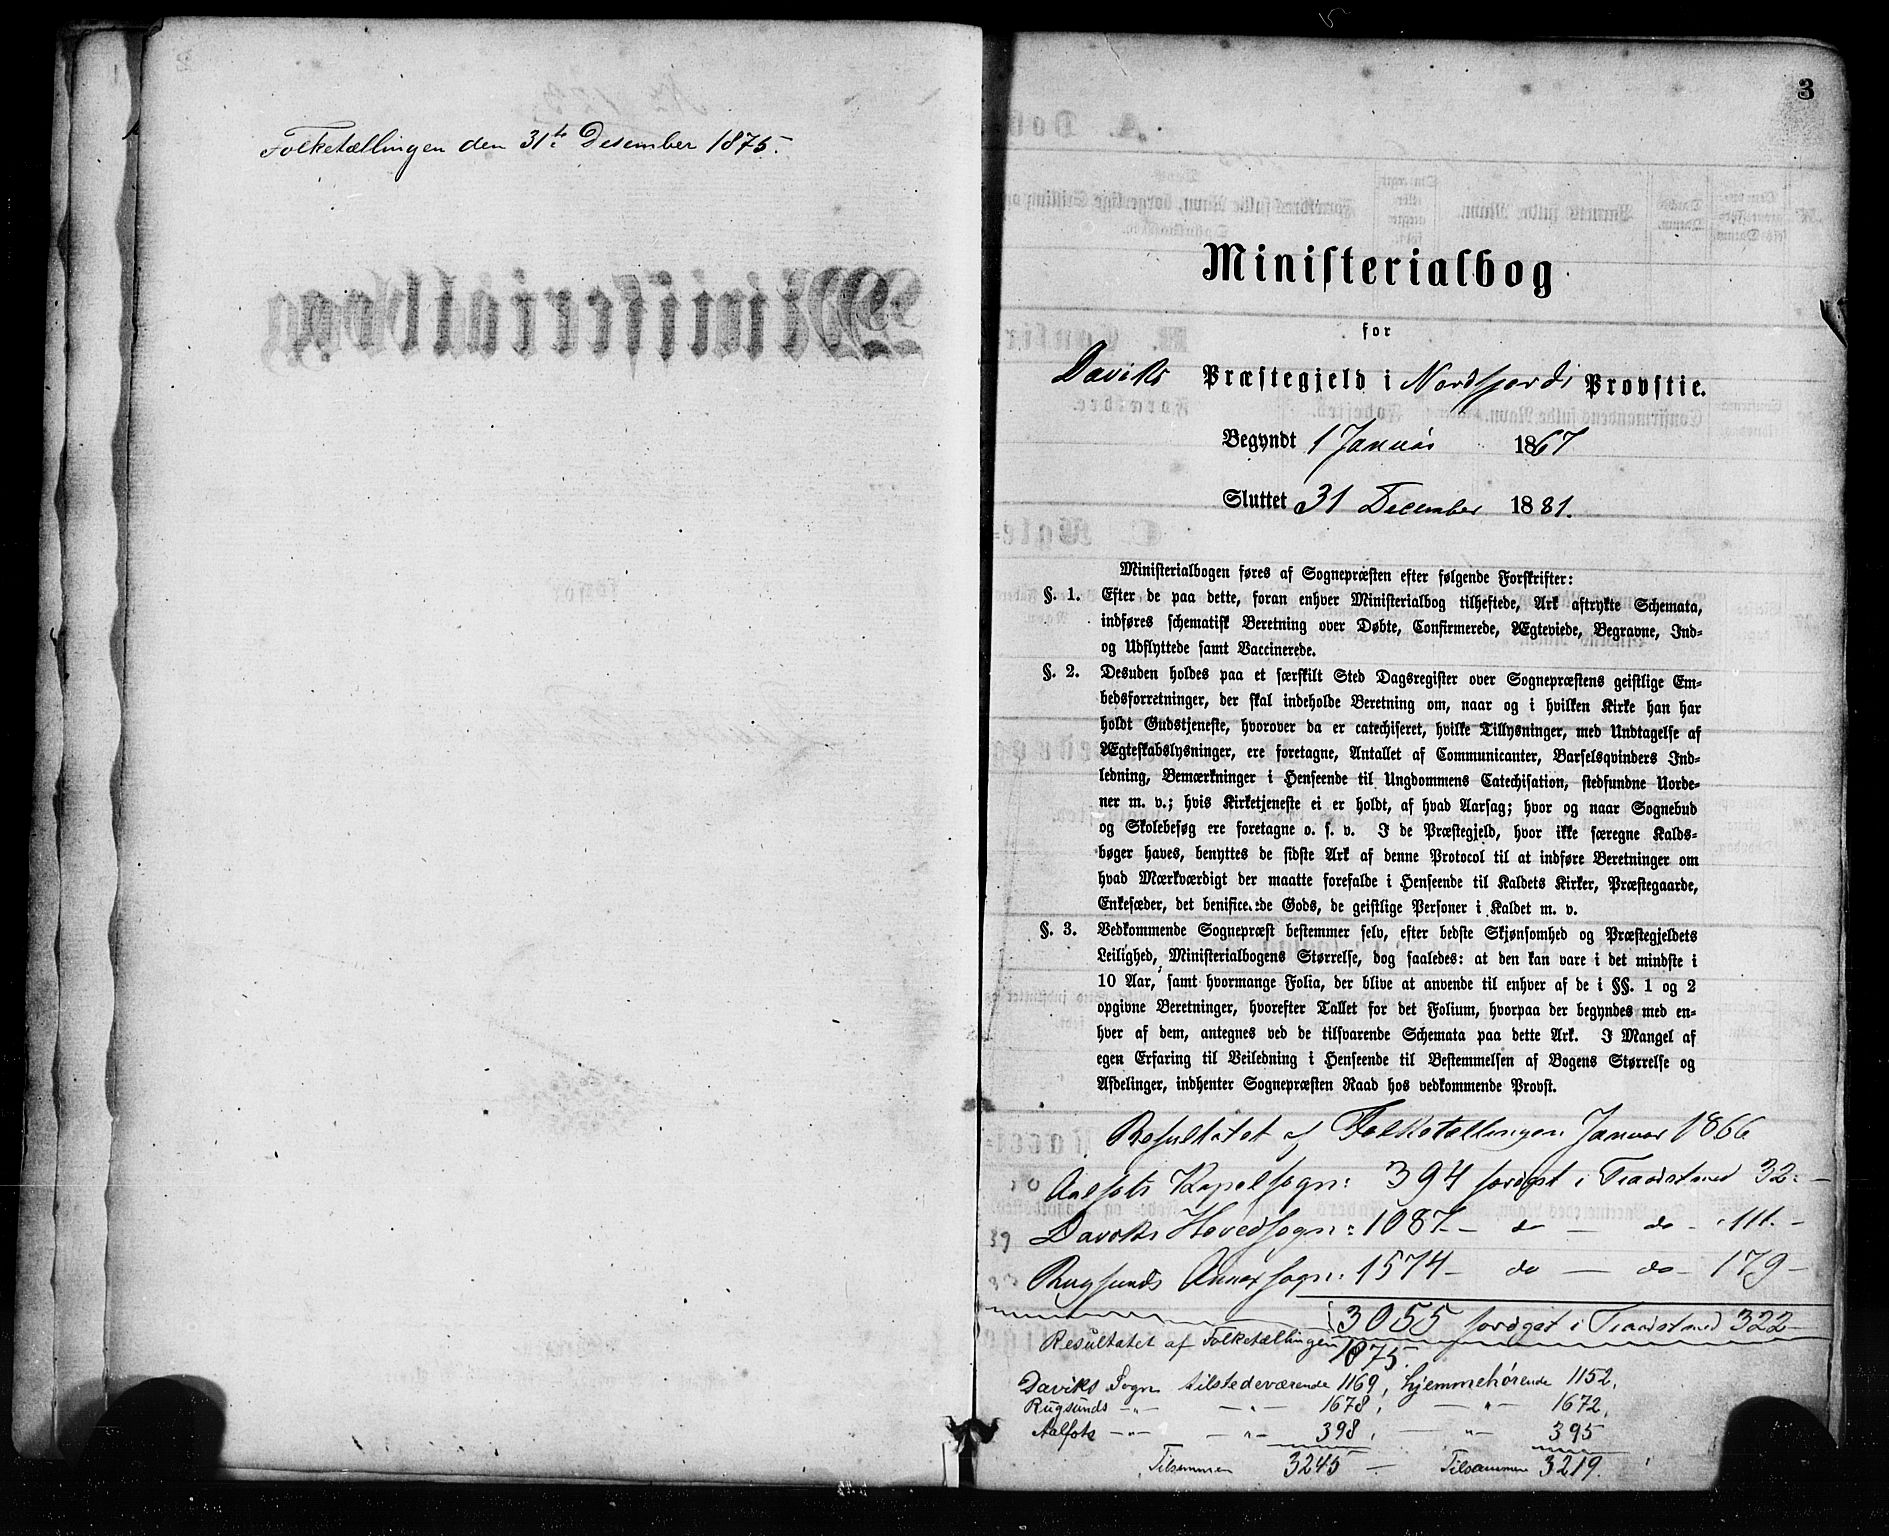 Folketællingen den 31te Desember 1875.
3
Ministerialbog
for
Daviks Præstegjeld i Nordfjords Provstie.
Begyndt 1 Januar 1867
Sluttet 31 December 1881.
Ministerialbogen føres af Sognepræsten efter følgende Forskrifter:
§. 1. Efter de paa dette, foran enhver Ministerialbog tilheftede, Ark aftrykte Schemata,
indføres schematisk Beretning over Døbte, Confirmerede, Ægteviede, Begravne, Ind-
og Udflyttede samt Vaccinerede.
§. 2. Desuden holdes paa et særskilt Sted Dagsregister over Sognepræstens geistlige Em-
bedsforretninger, der skal indeholde Beretning om, naar og i hvilken Kirke han har
holdt Gudstjeneste, hvorover da er catechiseret, hvilke Tillysninger, med Undtagelse af
Ægteskabslysninger, ere foretagne, Antallet af Communicanter, Barselqvinders Ind-
ledning, Bemærkninger i Henseende til Ungdommens Catechisation, stedfundne Uorde-
ner m. v.; hvis Kirketjeneste ei er holdt, af hvad Aarsag; hvor og naar Sognebud
og Skolebesøg ere foretagne o. s. v. I de Præstegjeld, hvor ikke særegne Kalds-
bøger haves, benyttes de sidste Ark af denne Protocol til at indføre Beretninger om
hvad Mærkværdigt der maatte forefalde i Henseende til Kaldets Kirker, Præstegaarde,
Enkesæder, det beneficerede Gods, de geistlige Personer i Kaldet m. v.
§. 3. Vedkommende Sognepræst bestemmer selv, efter bedste Skjønsomhed og Præstegjeldets
Leilighed, Ministerialbogens Størrelse, dog saaledes: at den kan vare i det mindste i
10 Aar, samt hvormange Folia, der blive at anvende til enhver af de i §§. 1 og 2
opgivne Beretninger, hvorefter Tallet for det Folium, hvorpaa der begyndes med en-
hver af dem, antegnes ved de tilsvarende Schemata paa dette Ark. I Mangel af
egen Erfaring til Veiledning i Henseende til Bestemmelsen af Bogens Størrelse og
Afdelinger, indhenter Sognepræsten Raad hos vedkommende Provst.
Resultatet af Folketællingen Januar 1866
Aalfots Kapelsogn: 394 fordøet i Tiaarstned 32: -
Daviks Hovedsogn: 1087 - do - do - 111. -
Rugsunds Annexsogn: 1574 - do - do - 179 -
3055 322 -
Resultatet af Folketællingen
1875.
Daviks Sogn tilstedeværende 1169, hjemmehørende 1152,
Rugsunds -"- -"- 1678, -"- 1672,
Aalfots -"- -"- 398, -"- 395
Tilsammen 3245 - Tilsammen 3219.